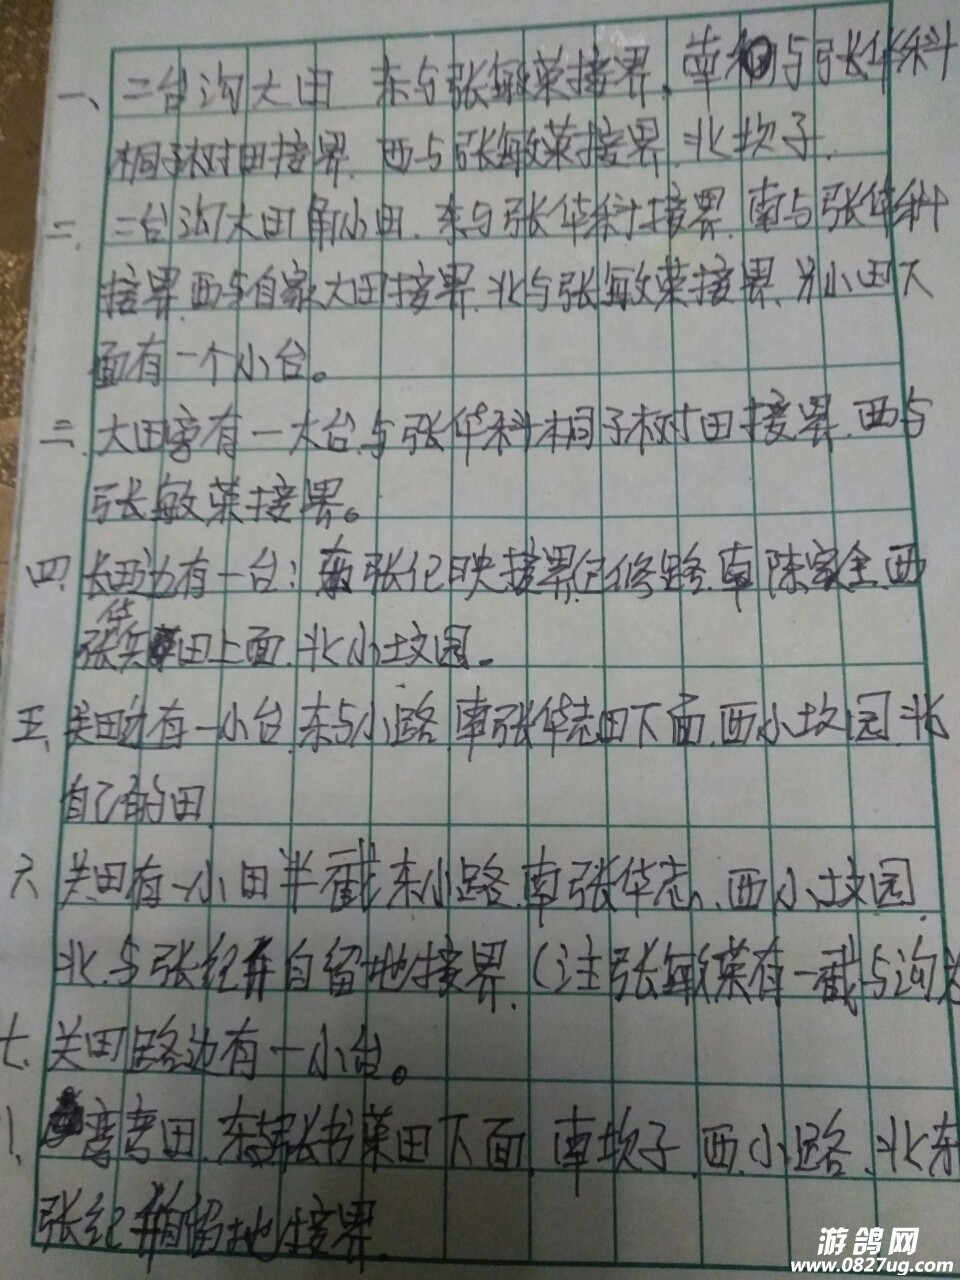 一、三台沟大田 东与张敏荣接界、南与张华科
桐子树田接界. 西与张敏荣接界. 北坎子.
二、三台沟大田角小田. 东与张华科接界. 南与张华科
接界. 西与自家大田接界. 北与张敏荣接界. 小田下
面有一个小台。
三、大田旁有一大台与张华科桐子树田接界. 西与
张敏荣接界。
四、长田边有一台: 东张纪映接界 修路. 南陈家全. 西
张华兵田上面. 北小坟园.
五、关田边有一小台. 东与小路. 南张华志田下面. 西小坟园. 北
自己的田.
六 关田有一小田半截东小路. 南张华志、西小坟园.
北与张纪 自留地接界. (注张敏荣有一截与沟
七、关田路边有一小台。
弯弯田. 东 张书荣田下面. 南坎子. 西小路. 北东
张纪 自留地接界.
游鸽网
www.0827ug.com